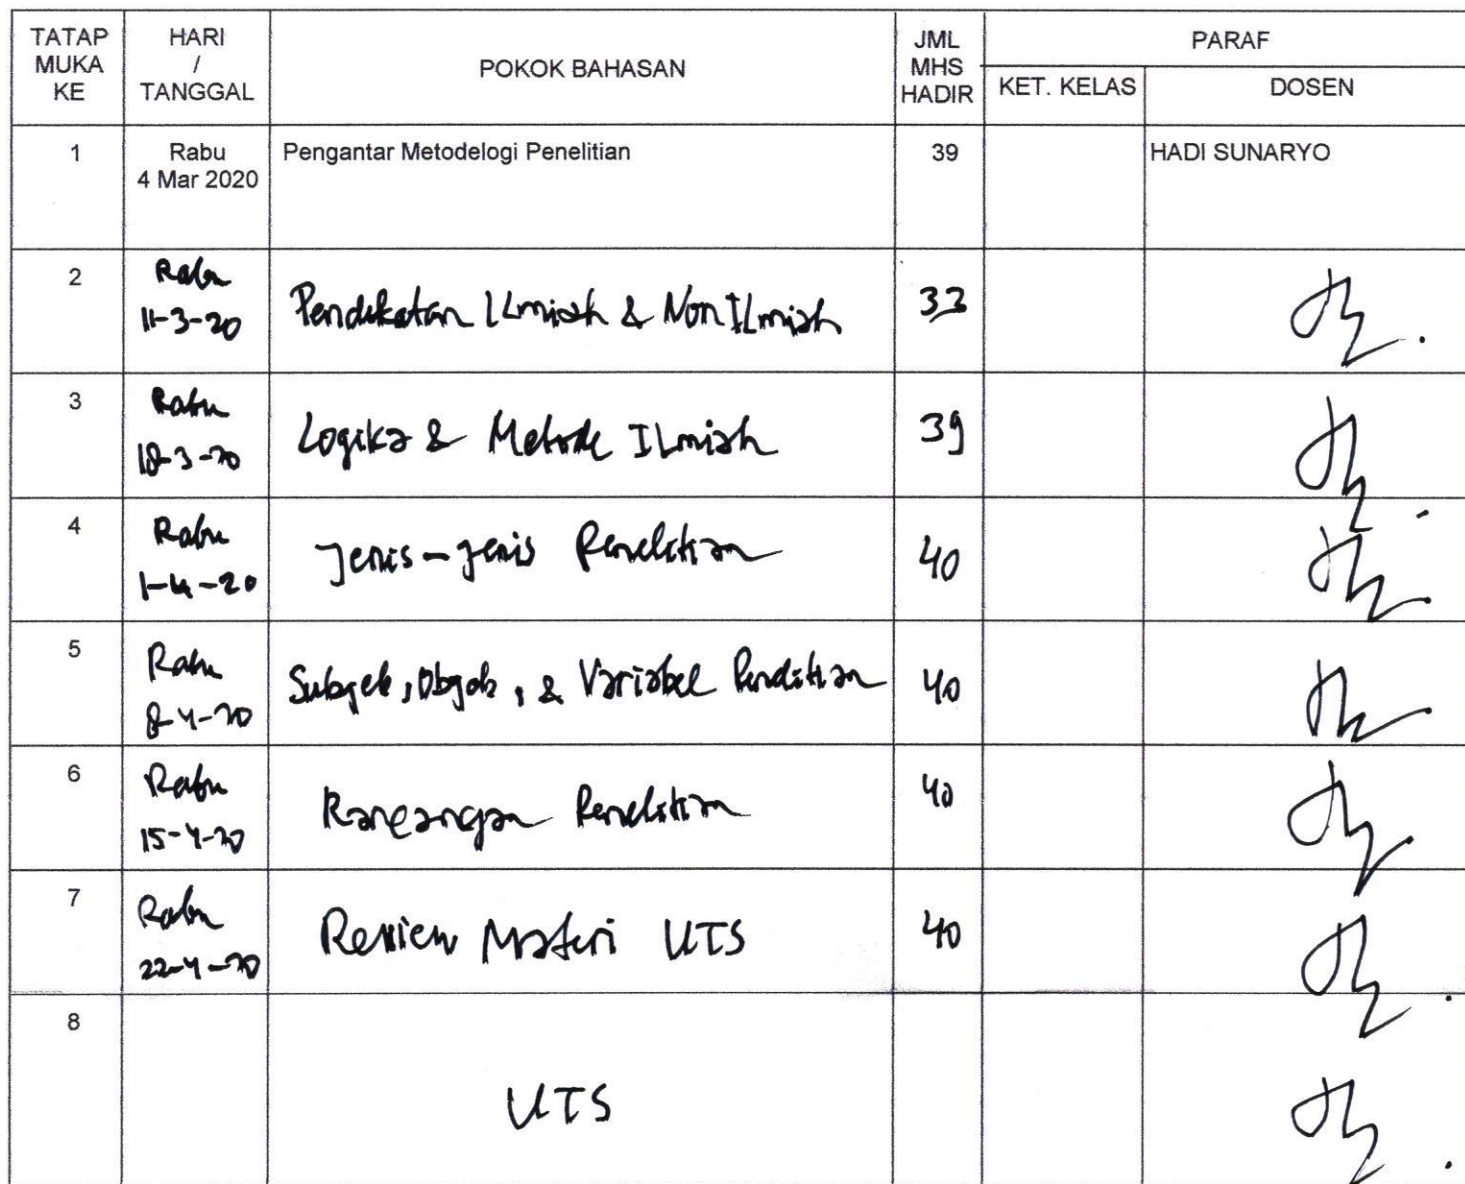 TATAP MUKA KE
HARI / TANGGAL
POKOK BAHASAN
JML MHS HADIR
PARAF
KET. KELAS
DOSEN
1
Rabu
4 Mar 2020
Pengantar Metodelogi Penelitian
39
HADI SUNARYO
2
Rabu
11-3-20
Pendekatan Ilmiah & Non Ilmiah
33
3
Rabu
18-3-20
Logika & Metode Ilmiah
39
4
Rabu
1-4-20
Jenis-Jenis Penelitian
40
5
Rabu
8-4-20
Subyek, Obyek, & Variabel Penelitian
40
6
Rabu
15-4-20
Rancangan Penelitian
40
7
Rabu
22-4-20
Review Materi UTS
40
8
UTS